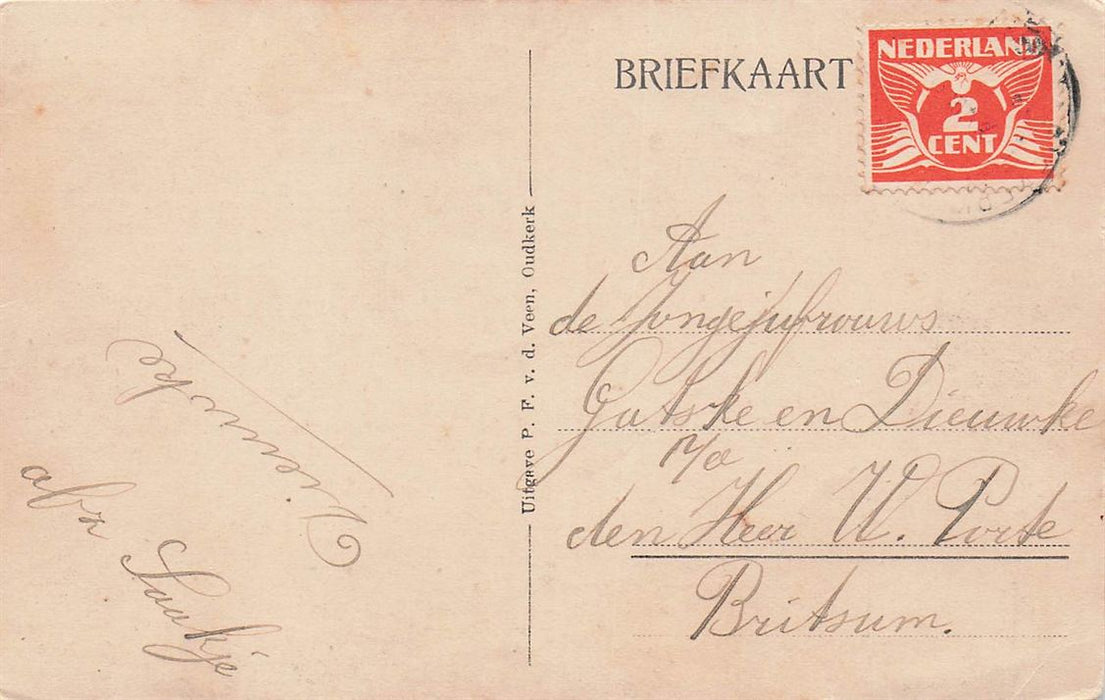 BRIEFKAART
NEDERLAND
2
CENT
Aan
de Jongejufrouws
Gatske en Dieuwke
p/a
den Heer W. Porte
Britsum.
Uitgave P. F. v. d. Veen, Oudkerk
afz
Saakje